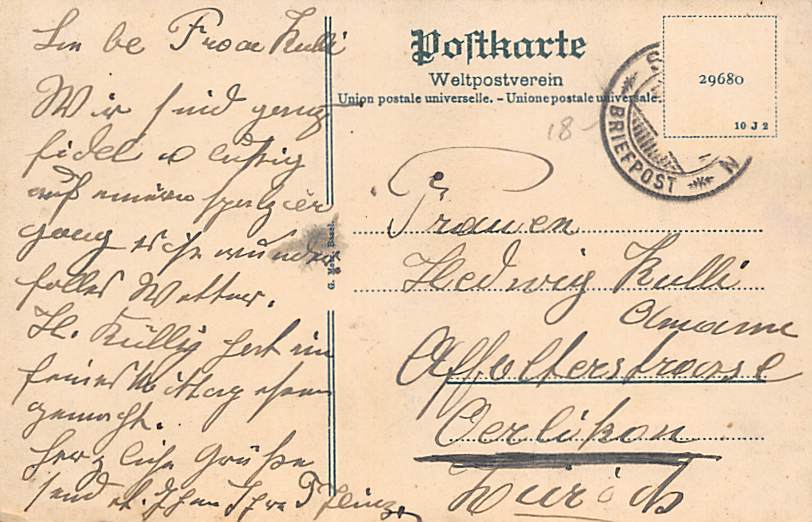 Lin be Frau Kulli
Wir sind ganz
fidel u lustig
auf einem spazier
gang es ist wunder
folles Wetter.
H. Külliy hat ein
feines Mittag essen
gemacht.
herzliche Grüße
send et. Ihnen Ihre
Postkarte
Weltpostverein
Union postale universelle. - Unione postale universale.
29680
10 J 2
BRIEFPOST
18-
Frauen
Hedwig Kulli
Amann
Affolterstrasse
Oerlikon
Zürich